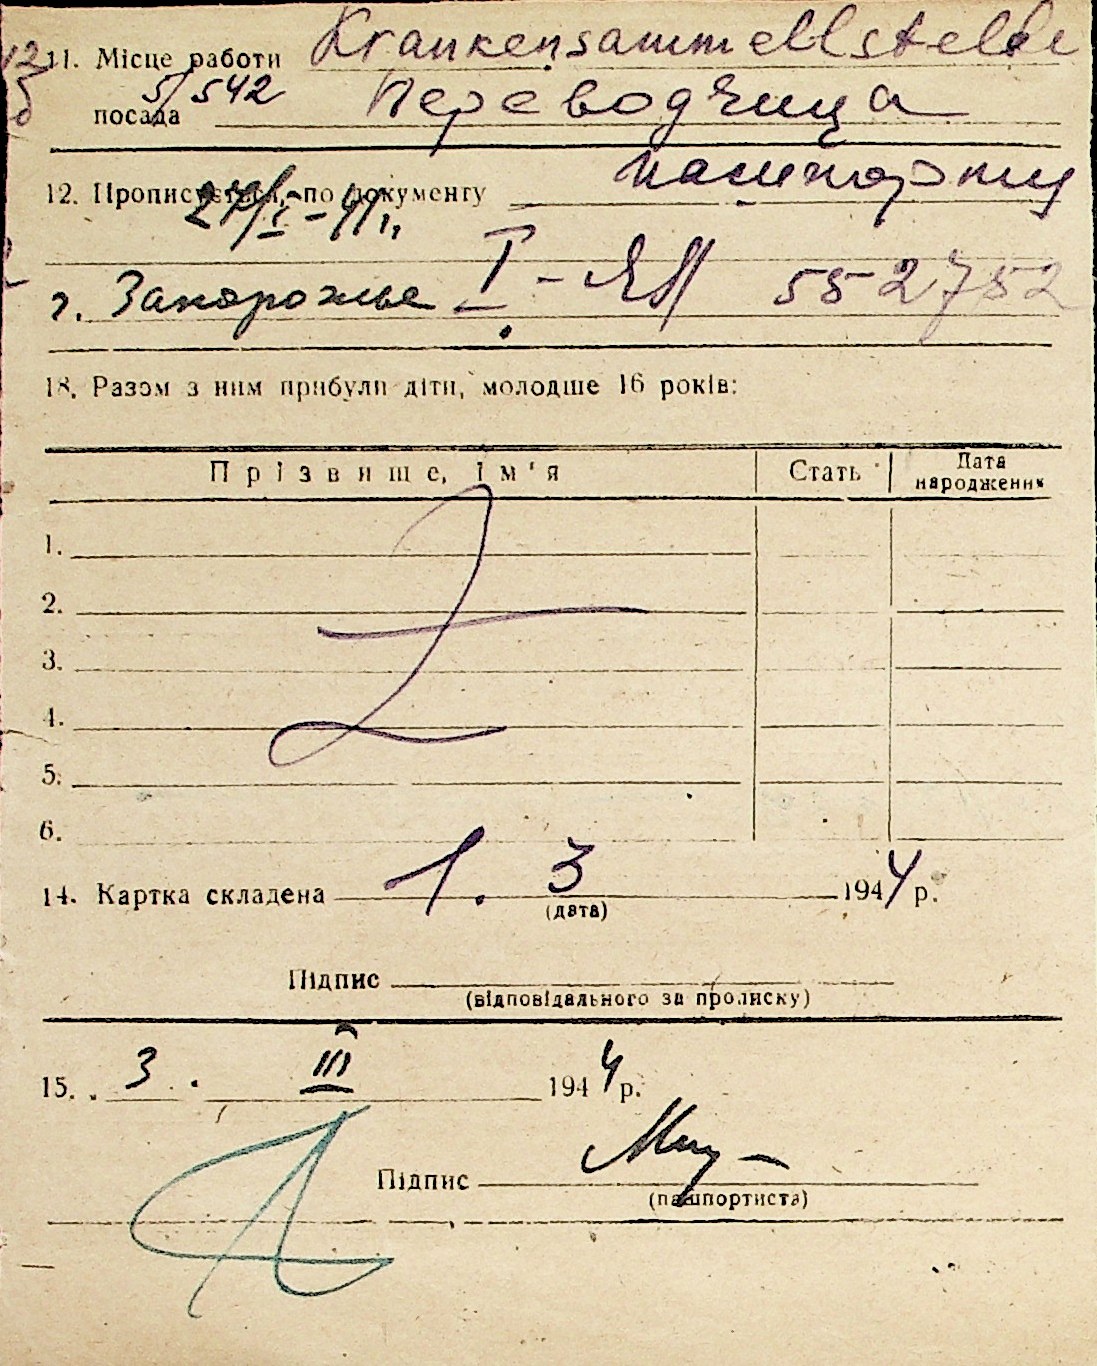 11. Місце работи Krankensammellstelle
5/542
посада Переводчица
12. Прописується по документу паспорту
г. Запорожье I - ЯП 552752
18. Разом з ним прибули діти, молодше 16 років:
Прізвише, ім'я Стать Дата народження
1.
2.
3.
4.
5.
6.
14. Картка складена 1. 3 1944 р.
(дата)
Підпис
(відповідального за прописку)
15. 3. III 1944 р.
Підпис
(пашпортиста)